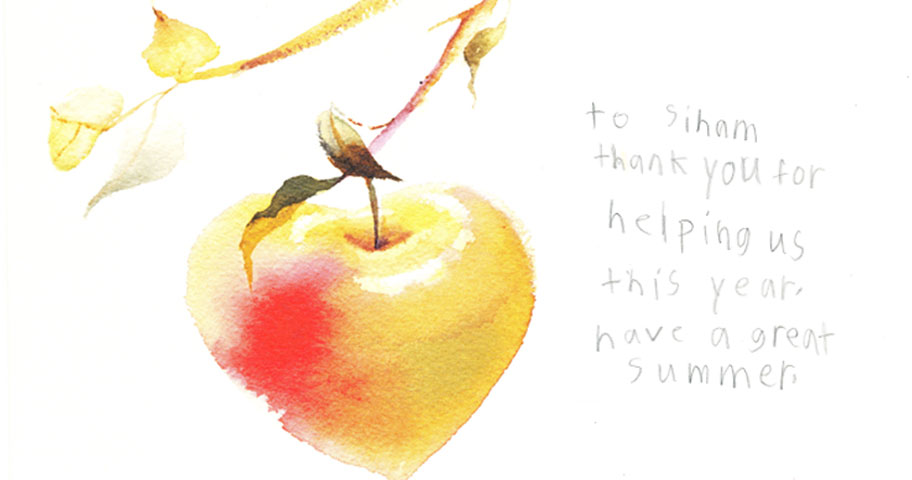 to siham
thank you for
helping us
this year.
have a great
summer.